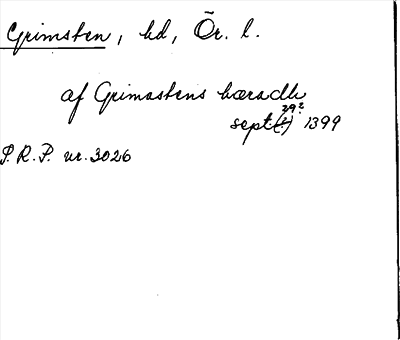 Grimsten, hd, Ör. l.
af Grimastens hæradh
29?
sept. (?) 1399
P.R.P. nr. 3026